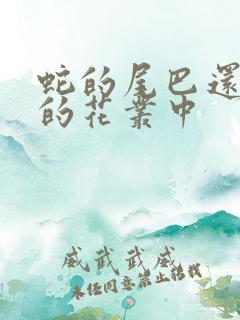 蛇的尾巴還
的花叢中
威武武威
未经同意禁止转载